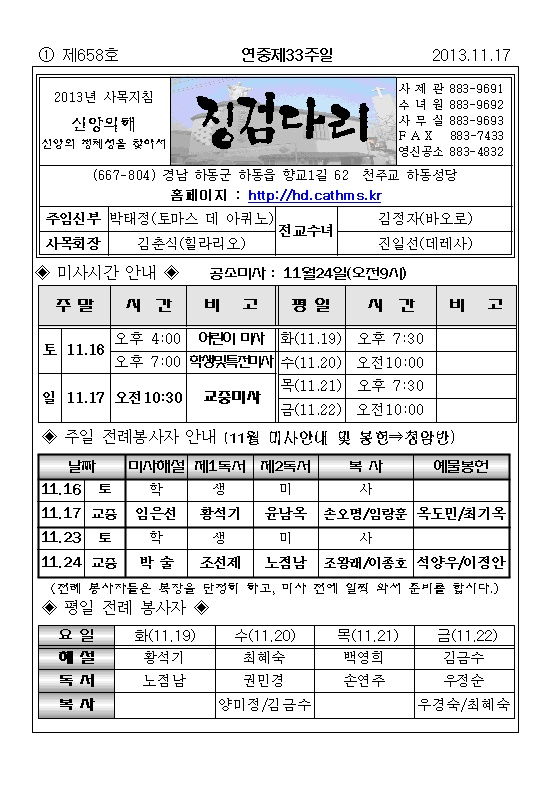 ① 제658호 연중제33주일 2013.11.17
2013년 사목지침
신앙의해
신앙의 정체성을 찾아서
징검다리
사 제 관 883-9691
수 녀 원 883-9692
사 무 실 883-9693
F A X 883-7433
영신공소 883-4832
(667-804) 경남 하동군 하동읍 향교1길 62 천주교 하동성당
홈페이지 : http://hd.cathms.kr
주임신부 박태정(토마스 데 아퀴노) 전교수녀 김정자(바오로)
사목회장 김춘식(힐라리오) 진일선(데레사)
◈ 미사시간 안내 ◈ 공소미사 : 11월24일(오전9시)
주 말 시 간 비 고 평 일 시 간 비 고
토 11.16 오후 4:00 어린이 미사 화(11.19) 오후 7:30
오후 7:00 학생및특전미사 수(11.20) 오전10:00
일 11.17 오전10:30 교중미사 목(11.21) 오후 7:30
금(11.22) 오전10:00
◈ 주일 전례봉사자 안내 (11월 미사안내 및 봉헌⇒청암반)
날짜 미사해설 제1독서 제2독서 복 사 예물봉헌
11.16 토 학 생 미 사
11.17 교중 임은선 황석기 윤남옥 손오명/임량훈 옥도민/최기옥
11.23 토 학 생 미 사
11.24 교중 박 술 조선제 노점남 조왕래/이종호 석양우/이정안
(전례 봉사자들은 복장을 단정히 하고, 미사 전에 일찍 와서 준비를 합시다.)
◈ 평일 전례 봉사자 ◈
요 일 화(11.19) 수(11.20) 목(11.21) 금(11.22)
해 설 황석기 최혜숙 백영희 김금수
독 서 노점남 권민경 손연주 우정순
복 사 양미정/김금수 우경숙/최혜숙